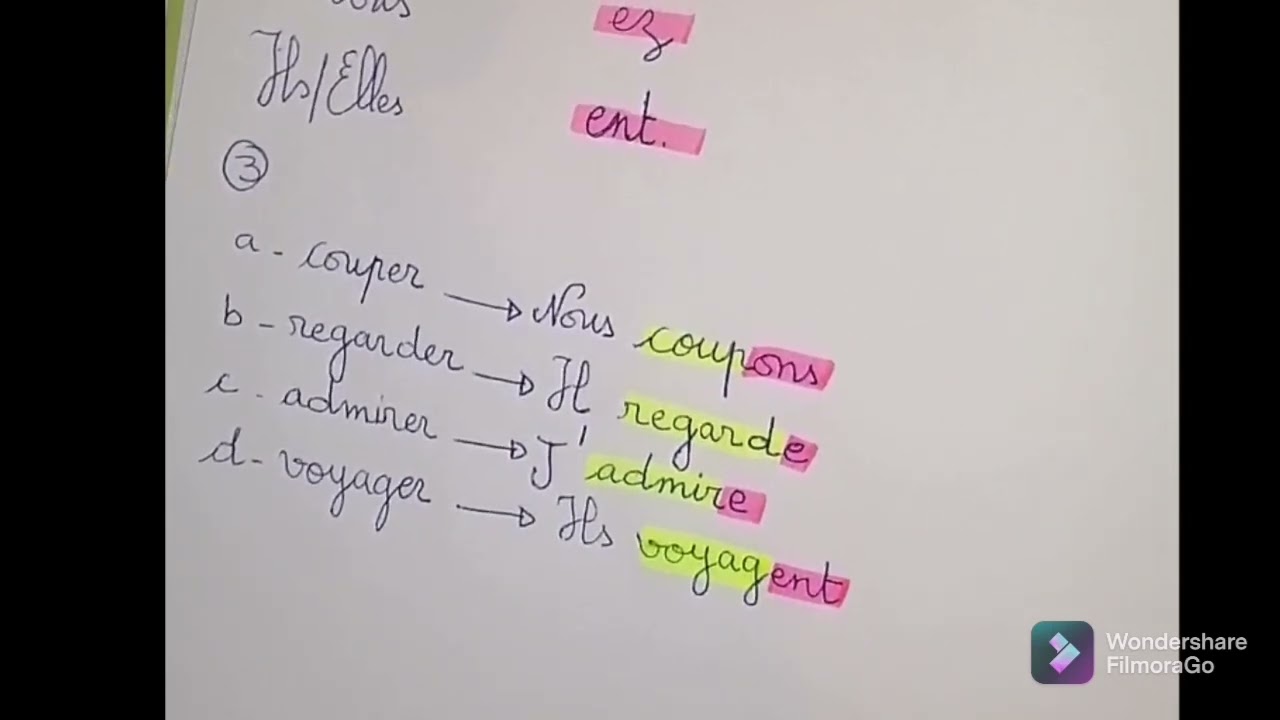 ez
Ils/Elles
ent.
3
a - couper → Nous coupons
b - regarder → Il regarde
c - admirer → J'admire
d - voyager → Ils voyagent
Wondershare
FilmoraGo